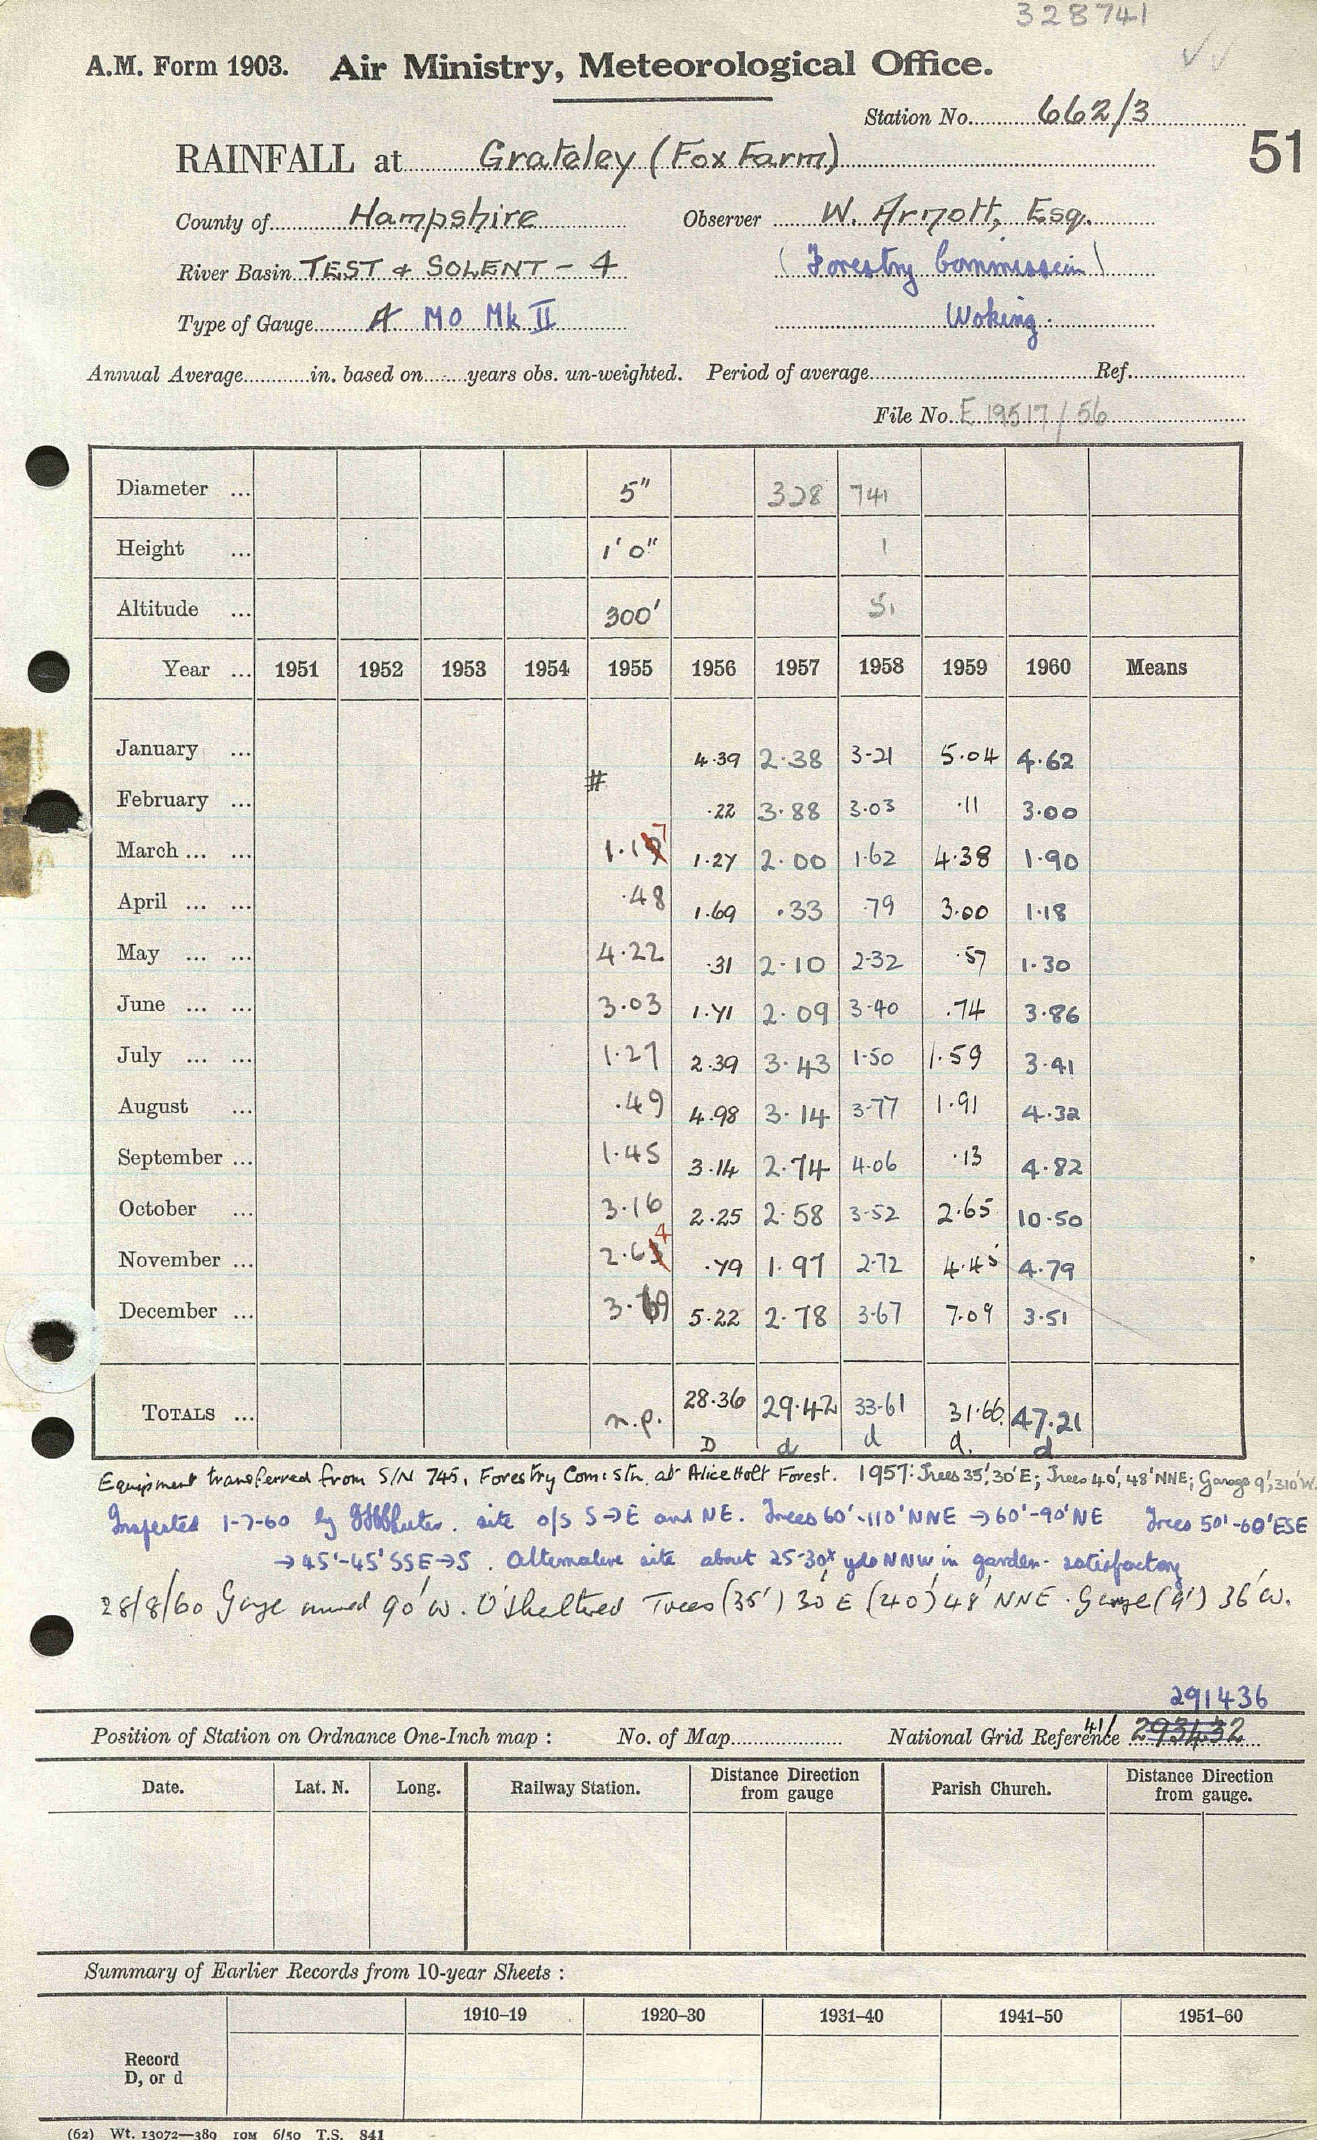 328741
A.M. Form 1903. Air Ministry, Meteorological Office.
Station No. 662/3
51
RAINFALL at Grateley (Fox Farm)
County of Hampshire Observer W. Arnott, Esq.
River Basin TEST & SOLENT - 4 (Forestry Commission)
Type of Gauge A MO Mk II Woking.
Annual Average in. based on years obs. un-weighted. Period of average Ref.
File No. E 19517/56
Diameter ... 5" 328 741
Height ... 1' 0" 1
Altitude ... 300' 51
Year ... 1951 1952 1953 1954 1955 1956 1957 1958 1959 1960 Means
January ... 4.39 2.38 3.21 5.04 4.62
#
February ... .22 3.88 3.03 .11 3.00
March ... ... 1.17 1.27 2.00 1.62 4.38 1.90
April ... ... .48 1.69 .33 .79 3.00 1.18
May ... ... 4.22 .31 2.10 2.32 .57 1.30
June ... ... 3.03 1.71 2.09 3.40 .74 3.86
July ... ... 1.27 2.39 3.43 1.50 1.59 3.41
August ... .49 4.98 3.14 3.77 1.91 4.32
September ... 1.45 3.14 2.74 4.06 .13 4.82
October ... 3.16 2.25 2.58 3.52 2.65 10.50
November ... 2.64 .79 1.97 2.72 4.45 4.79
December ... 3.69 5.22 2.78 3.67 7.09 3.51
TOTALS ... n.p. 28.36 29.42 33.61 31.66 47.21
D d d d. d
Equipment transferred from S/N 745, Forestry Com: Stn. at Alice Holt Forest. 1957: Trees 35', 30'E; Trees 40', 48'NNE; Garage 9', 310'W.
Inspected 1-7-60 by site o/s S→E and NE. Trees 60'-110'NNE →60'-90'NE Trees 50'-60'ESE
→45'-45'SSE→S. Alternative site about 25-30x yds NNW in garden - satisfactory
28/8/60 Gauge moved 90' W. O'sheltered Trees (35') 30'E (40') 48' NNE. (9') 36' W.
291436
Position of Station on Ordnance One-Inch map : No. of Map National Grid Reference 41/ 293432
Date. Lat. N. Long. Railway Station. Distance Direction from gauge Parish Church. Distance Direction from gauge.
Summary of Earlier Records from 10-year Sheets :
1910–19 1920–30 1931–40 1941–50 1951–60
Record
D, or d
(62) Wt. 13072—389 10M 6/50 T.S. 841